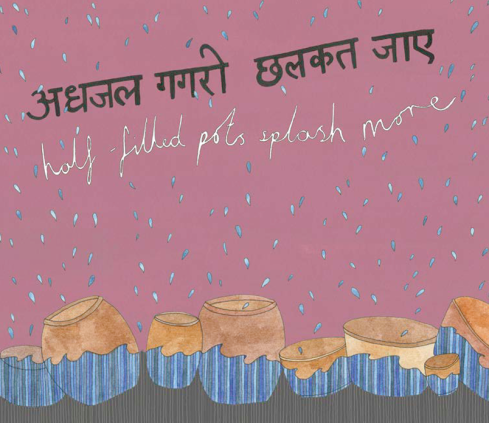 अधजल गगरी छलकत जाए
half-filled pots splash more